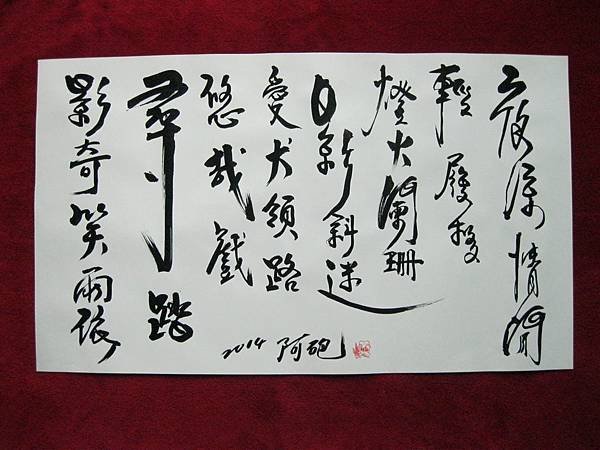 夜深情閒
輕履
燈火闌珊
月影斜迷
愛犬領路
悠哉戲
尋踏
影奇笑兩依
2014 阿砲